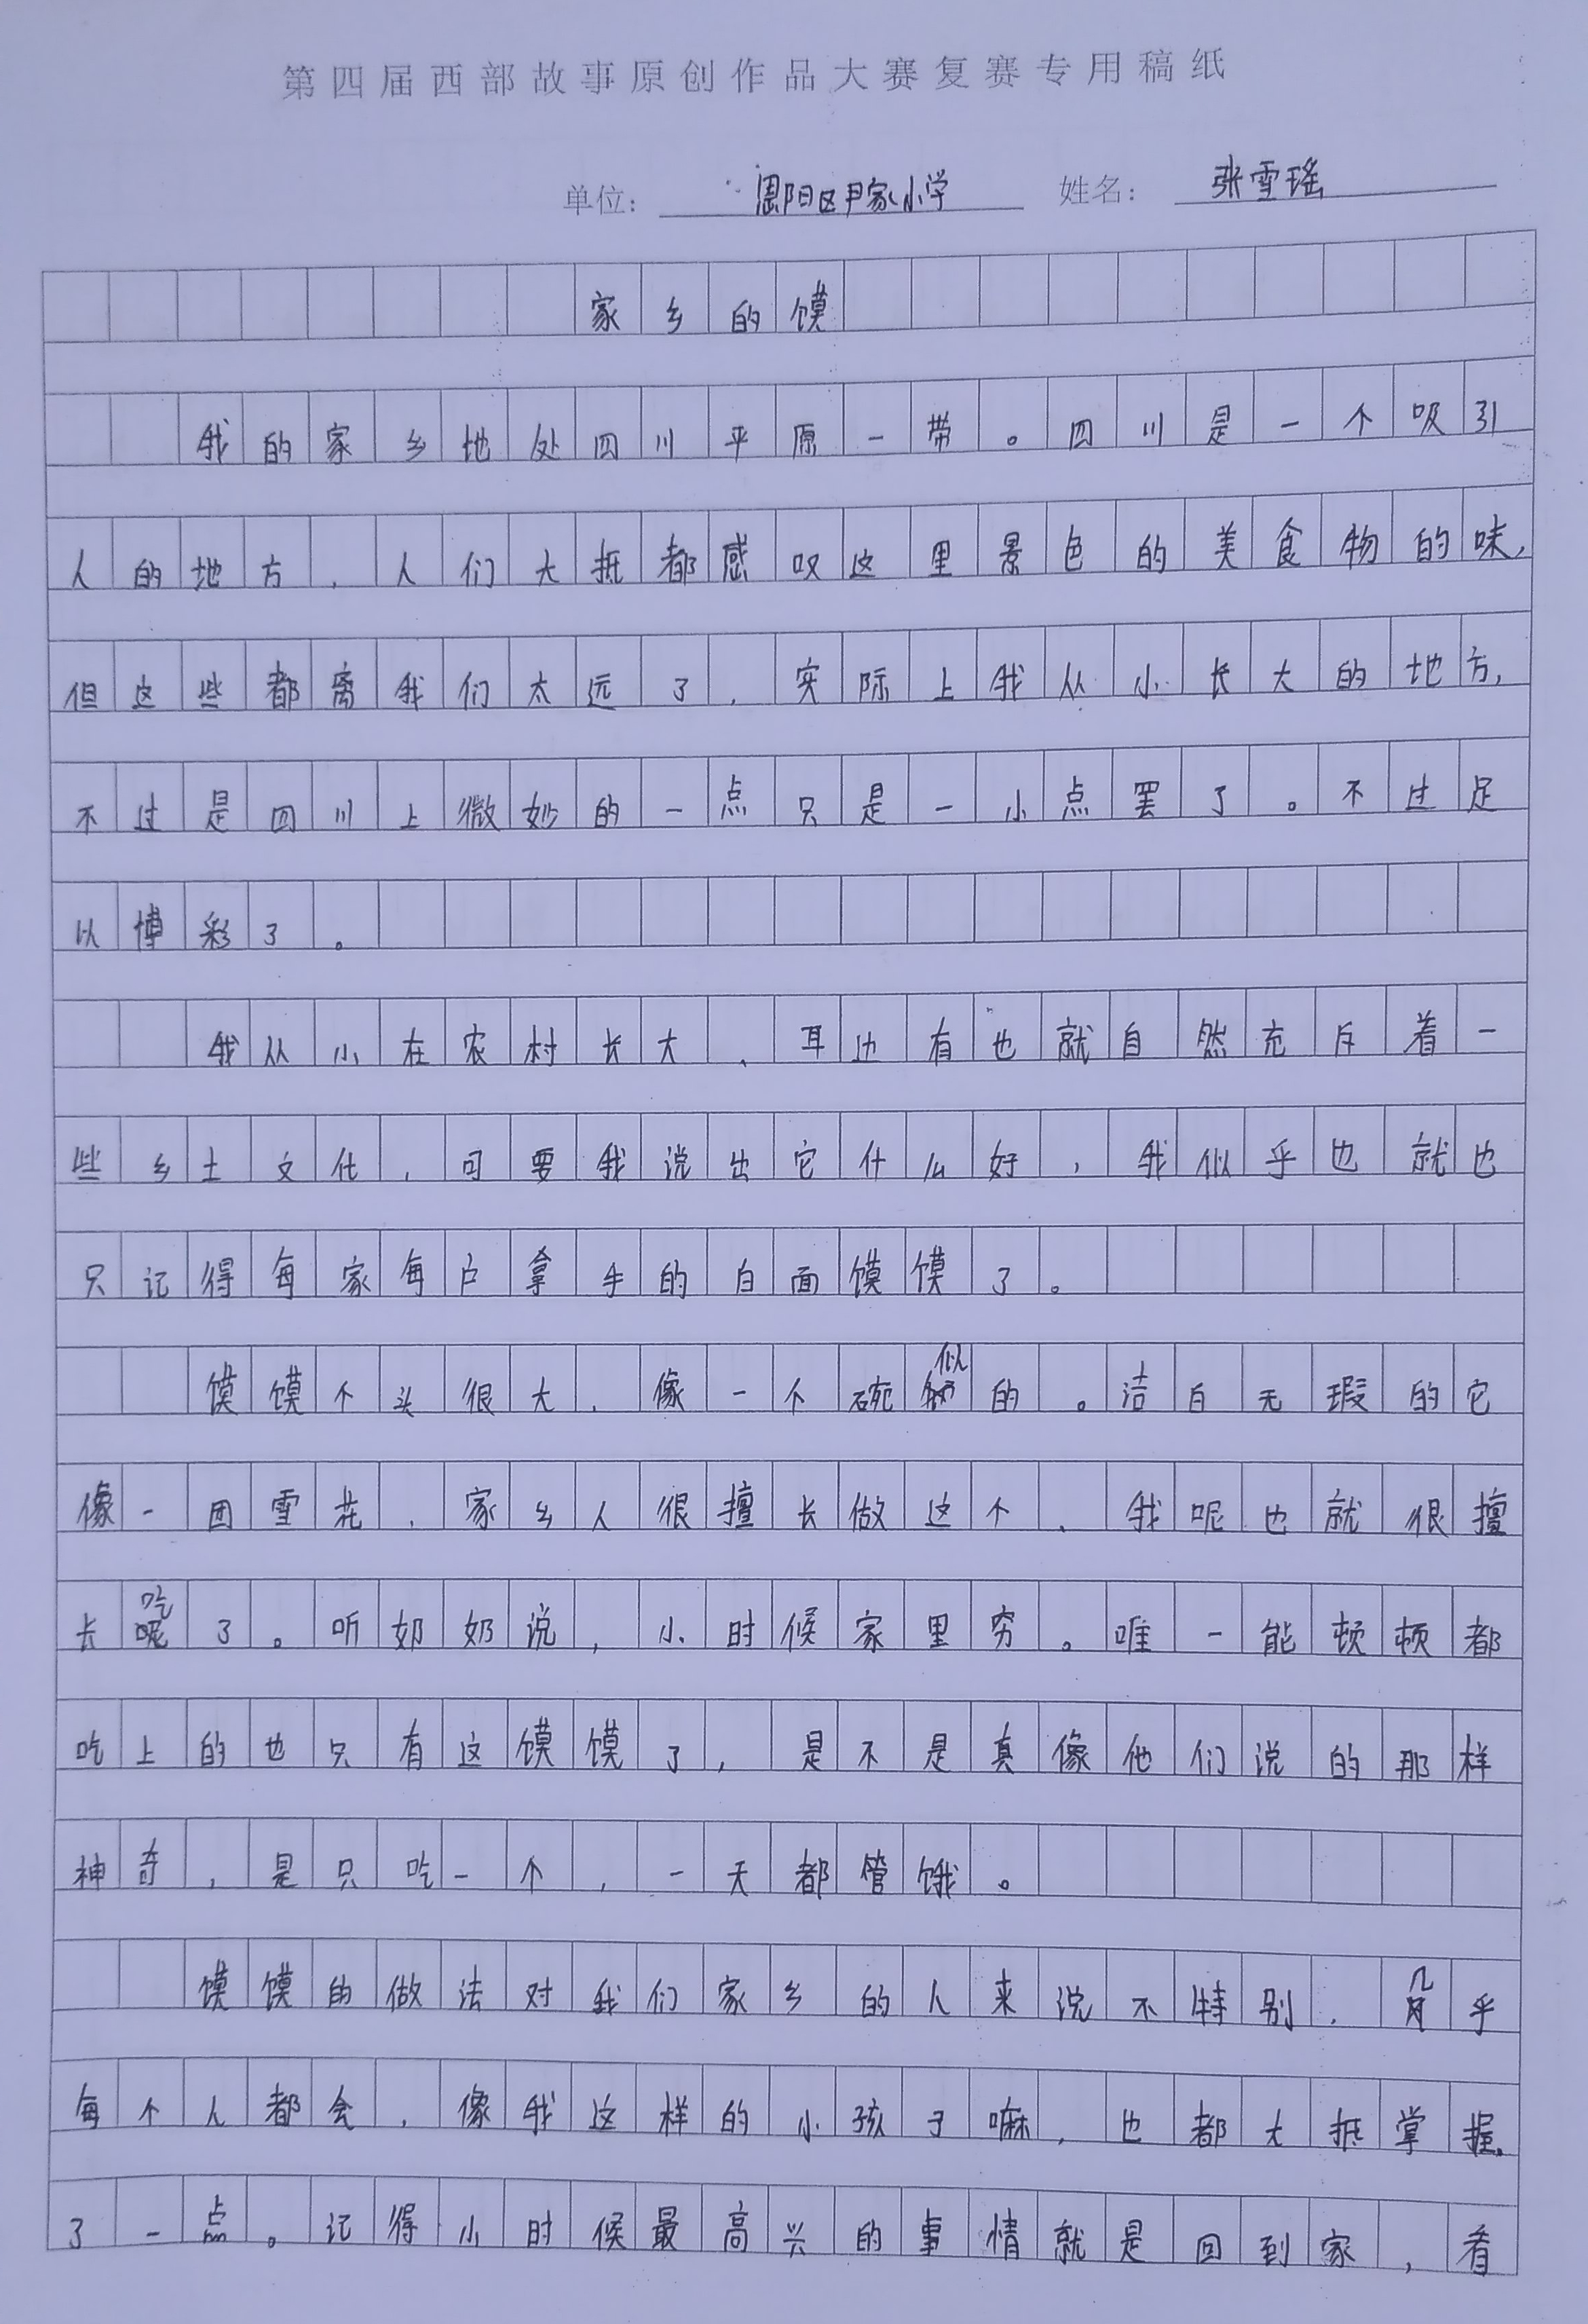 第四届西部故事原创作品大赛复赛专用稿纸
单位: 阳区尹家小学 姓名: 张雪瑶
家乡的馍
我的家乡地处四川平原一带。四川是一个吸引
人的地方,人们大抵都感叹这里景色的美食物的味,
但这些都离我们太远了,实际上我从小长大的地方,
不过是四川上微妙的一点只是一小点罢了。不过足
以博彩了。
我从小在农村长大、耳边有也就自然充斥着一
些乡土文化,可要我说出它什么好,我似乎也就也
只记得每家每户拿手的白面馍馍了。
馍馍个头很大,像一个碗似的。洁白无瑕的它
像一团雪花,家乡人很擅长做这个、我呢也就很擅
长吃了。听奶奶说,小时候家里穷。唯一能顿顿都
吃上的也只有这馍馍了,是不是真像他们说的那样
神奇,是只吃一个,一天都管饿。
馍馍的做法对我们家乡的人来说不特别,几乎
每个人都会,像我这样的小孩子嘛,也都大抵掌握
了一点。记得小时候最高兴的事情就是回到家,看